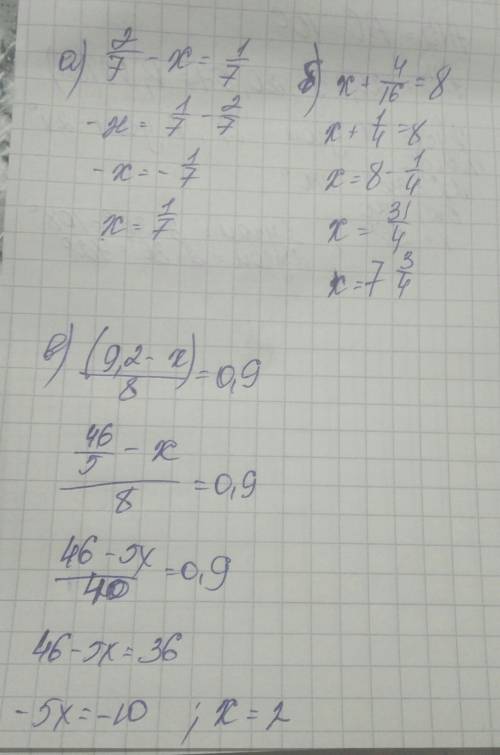 а) 2/7 - x = 1/7
-x = 1/7 - 2/7
-x = - 1/7
x = 1/7
б) x + 4/16 = 8
x + 1/4 = 8
x = 8 - 1/4
x = 31/4
x = 7 3/4
в) (9,2 - x)/8 = 0,9
(46/5 - x)/8 = 0,9
(46 - 5x)/40 = 0,9
46 - 5x = 36
-5x = -10 ; x = 2